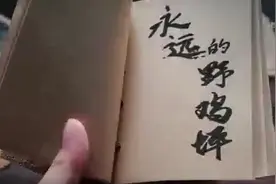 永远的
野鸡坪